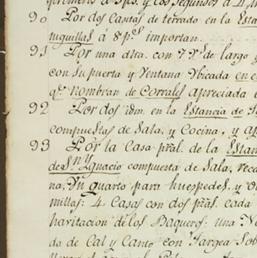 primero à 5 ps. y los segundos à
90 Por dos Cantas de terrado en la Esta
tuguillas à 8 ps importan.
91 Por una dha. con 7 vs de largo
con su puerta y Ventana Vbicada en e
qe Nombran de Corrales apreciada
92 Por dos idm. en la Estancia de
compuestas de Sala, y Cocina, y ap
93 Por la Casa pral. de la Estan
de Sn Ygnacio compuesta de Sala, reca
na, Un quarto para huespedes, y O
millos: 4. Casas con dos pras. cada
havitacion de los Baqueros: una No
da de Cal y Canto con Targea Sob